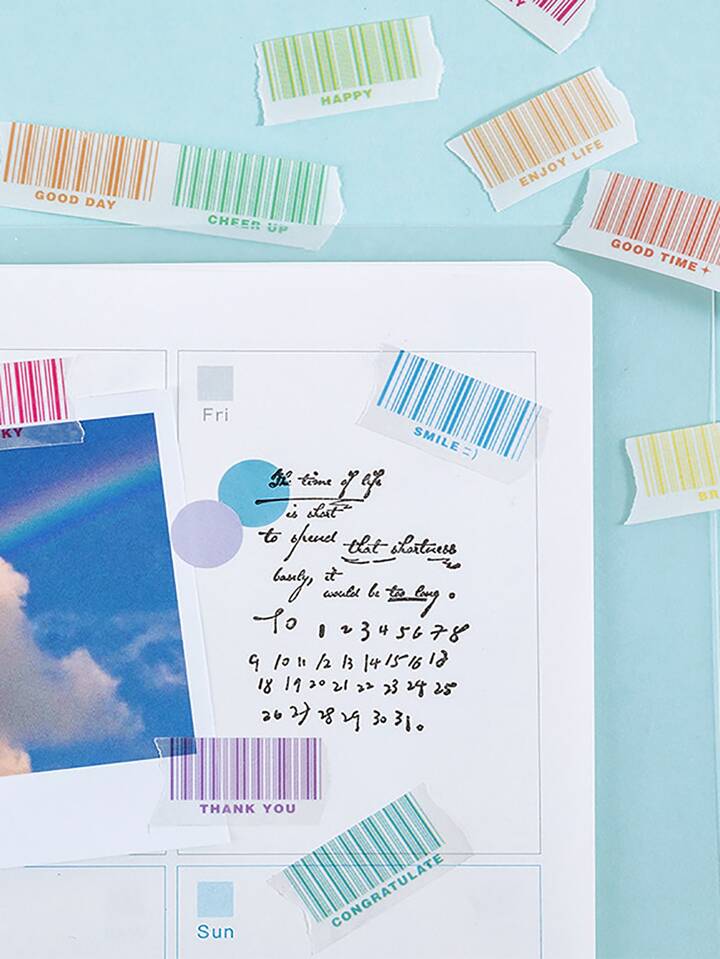 KY
HAPPY
ENJOY LIFE
GOOD DAY
CHEER UP
GOOD TIME
Fri
SMILE =)
KY
BR
The time of life
is short
to spend that shortness
basely, it
would be too long.
To 1 2 3 4 5 6 7 8
9 10 11 12 13 14 15 16 18
18 19 20 21 22 23 24 25
26 27 28 29 30 31.
THANK YOU
CONGRATULATE
Sun